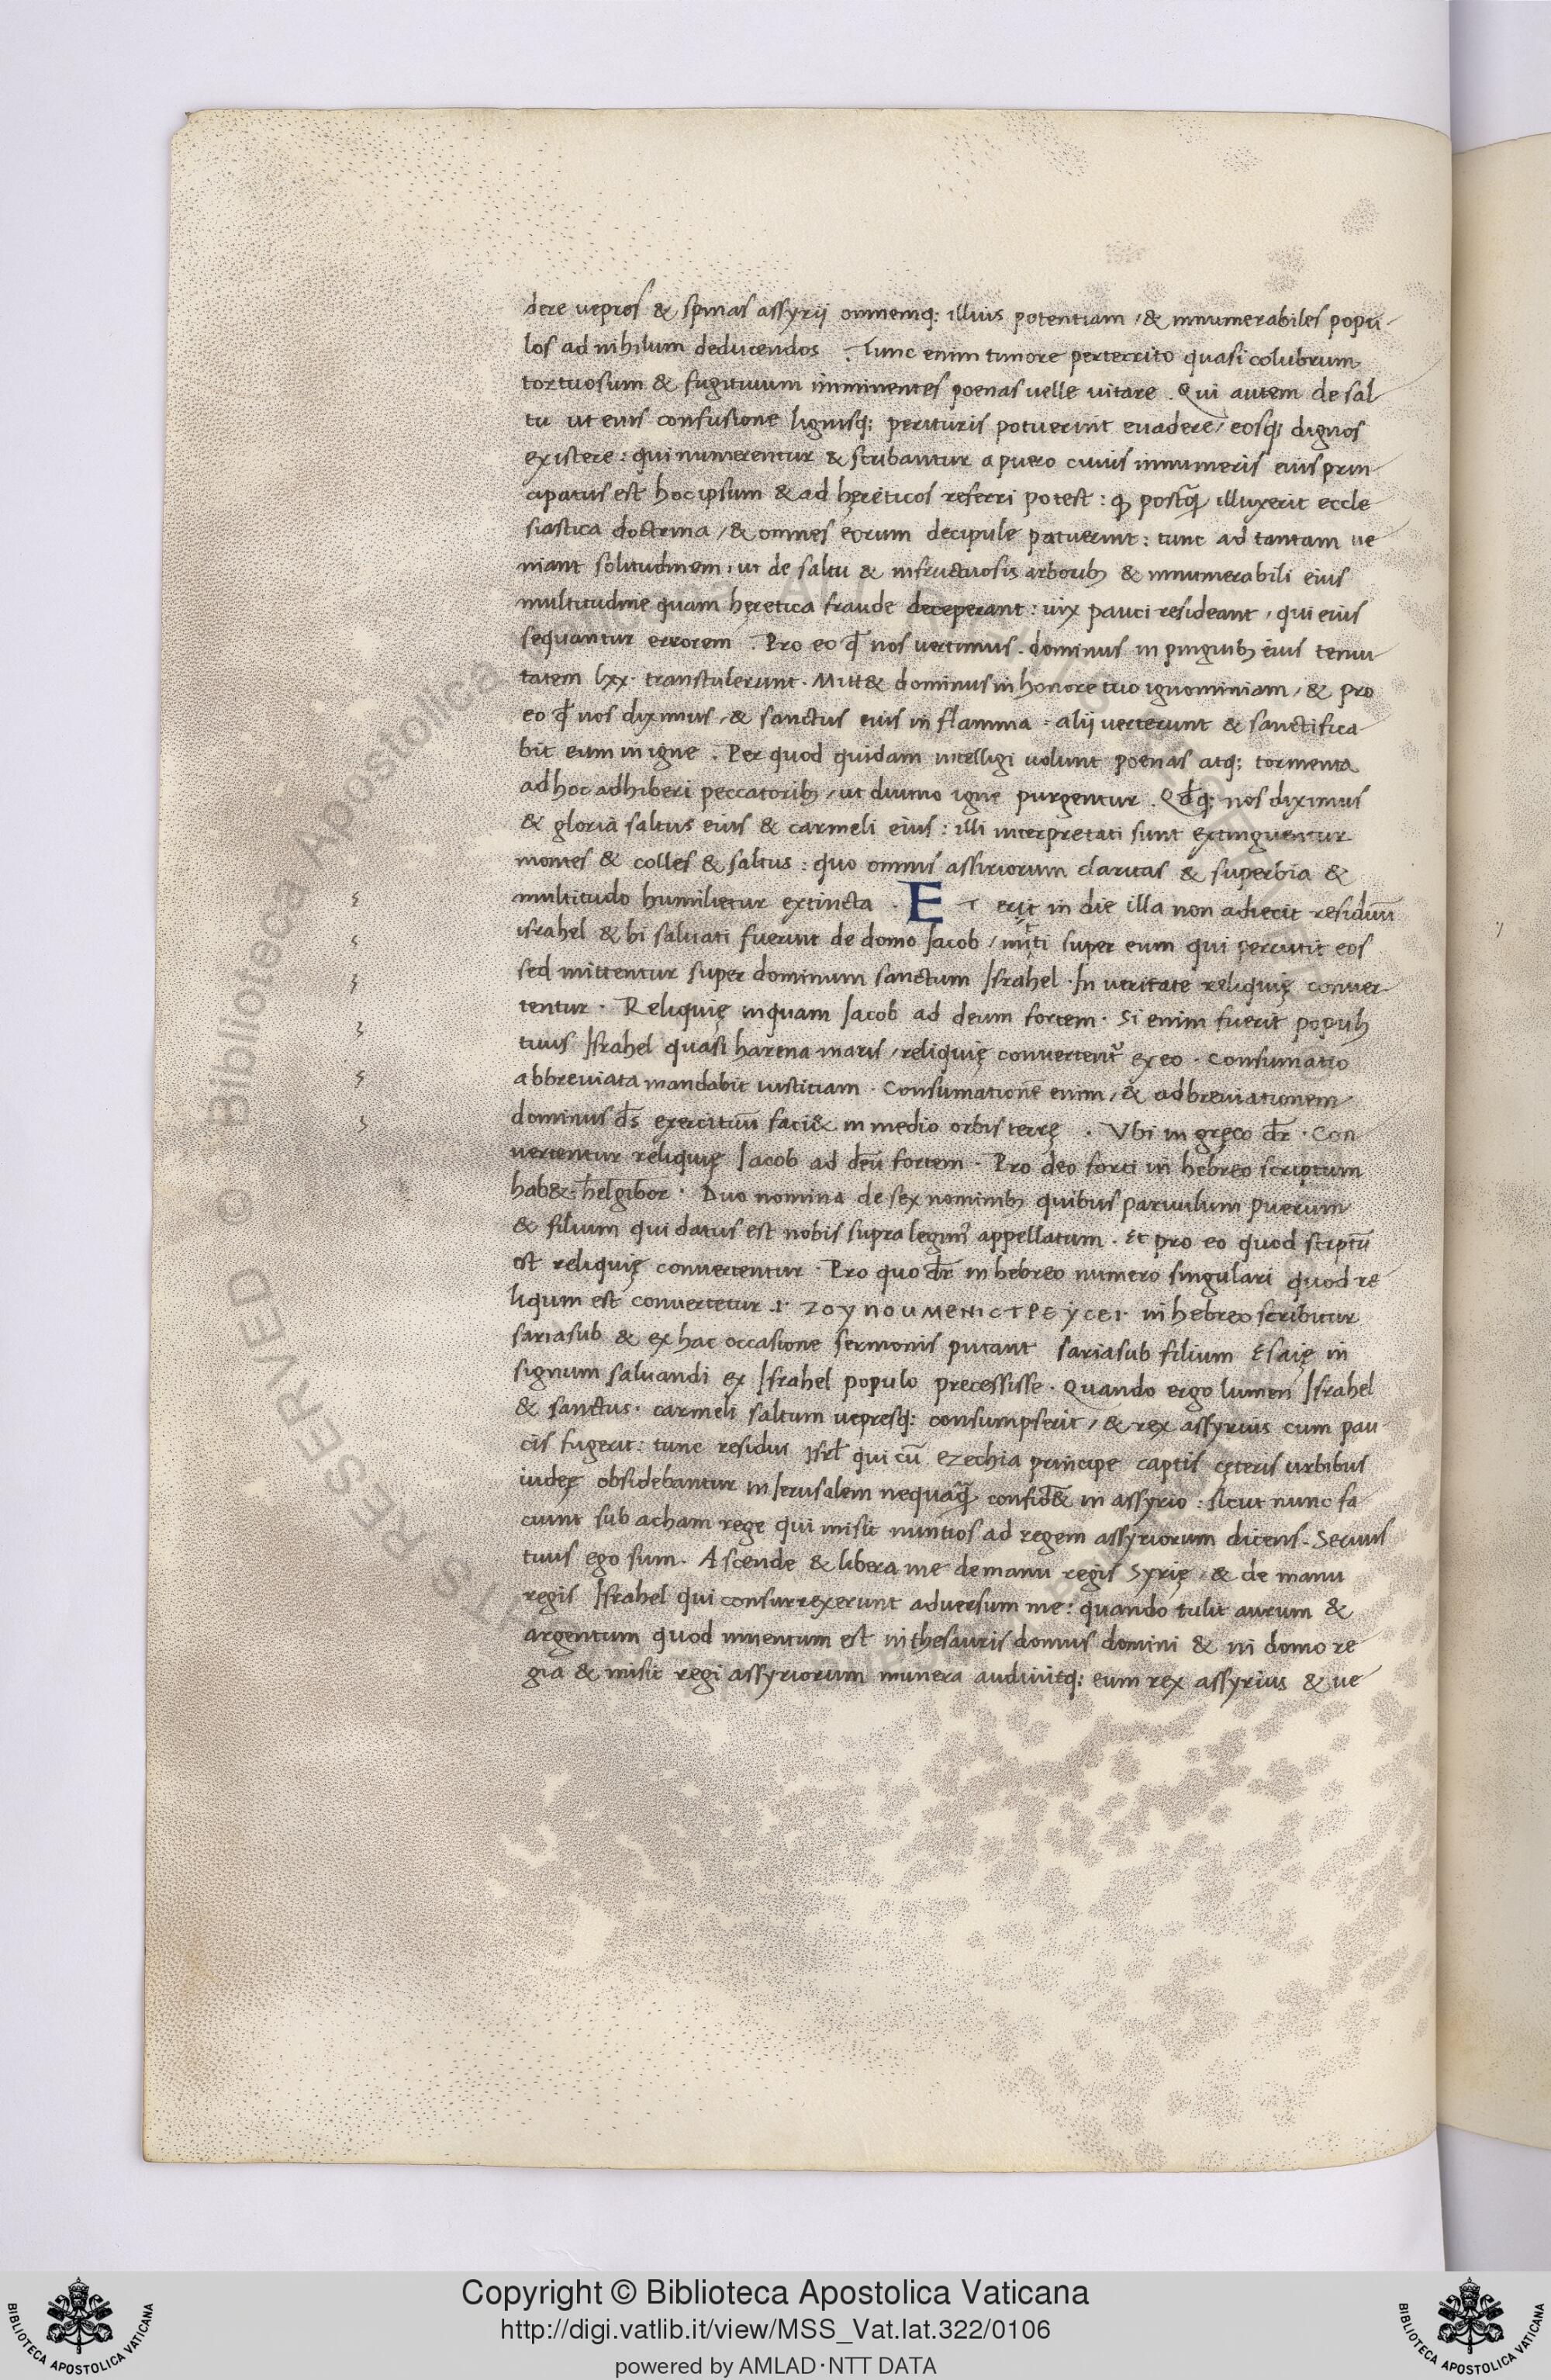 dere uepres & spinas assyrij omnemq; illius potentiam / & innumerabiles popu-
los ad nihilum deducendos . Tunc enim timore perterrito quasi colubrum
tortuosum & fugitiuum imminentes poenas uelle uitare . Qui autem de sal
tu ut eius confusione lignisq; perituris potuerint euadere / eosq; dignos
existere : qui numerentur & scribantur a puero cuius innumeris eius prin
cipatus est hoc ipsum & ad hęreticos referri potest : ꝙ postq̃ illuxerit eccle
siastica doctrina / & omnes eorum decipule patuerint : tunc ad tantam ue
niant solitudinem : ut de saltu & infructuosis arborib; & innumerabili eius
multitudine quam hęretica fraude deceperant : uix pauci resideant , qui eius
sequantur errorem . Pro eo qđ nos uertimus . dominus in pinguib; eius tenui
tatem lxx . transtulerunt . Mitt& dominus in honore tuo ignominiam , & pro
eo qđ nos diximus , & sanctus eius in flamma . alij uerterunt & sanctifica
bit eum in igne . Per quod quidam intelligi uolunt poenas atq; tormenta
ad hoc adhiberi peccatorib; / ut diuino igne purgentur . Qđq; nos diximus
& gloria saltus eius & carmeli eius : illi interpretati sunt extinguentur
montes & colles & saltus : quo omnis assiriorum claritas & superbia &
multitudo humilietur extincta . ET erit in die illa non adiecit residuũ
israhel & hi saluati fuerint de domo Iacob / super eum qui percutit eos
sed mittentur super dominum sanctum Israhel . In ueritate reliquię conuer-
tentur . Reliquię inquam Iacob ad deum fortem . Si enim fuerit popul;
tuus Israhel quasi harena maris , reliquię conuertent᷑ ex eo . Consumatio
abbreuiata mandabit iustitiam . Consumationẽ enim , & adbreuiationem
dominus d̄s exercituũ faci& in medio orbis terrę . Vbi in gręco dr̄ . Con
uertentur reliquię Iacob ad deũ fortem . Pro deo forti in hebreo scriptum
hab& : helgibor . Duo nomina de sex nominib; quibus paruulum puerum
& filium qui datus est nobis supra legim᷒ appellatum . Et pro eo quod scriptũ
est reliquię conuertentur . Pro quo dr̄ in hebreo numero singulari quod re
liqum est conuertetur .i. ΖΟΥΠΟΥΜΕΝΙCΤΡΕΥCΕΙ . in hebreo scribitur
sariasub & ex hac occasione sermonis putant sariasub filium Esaię in
signum saluandi ex Israhel populo precessisse . Quando ergo lumen Israhel
& sanctus . carmeli saltum uepresq; consumpserit , & rex assyrius cum pau
cis fugerit : tunc residui isrł qui cũ ezechia principe captis cęteris urbibus
iudeę obsidebantur in Ierusalem nequaq̃ confid& in assyrio : sicut nunc fa
ciunt sub acham rege qui misit nuntios ad regem assyriorum dicens . Seruus
tuus ego sum . Ascende & libera me de manu regis Syrię , & de manu
regis Israhel qui consurrexerunt aduersum me : quando tulit aurum &
argentum quod inuentum est in thesauris domus domini & in domo re
gia & misit regi assyriorum munera audiuitq; eum rex assyrius & ue
Copyright © Biblioteca Apostolica Vaticana
http://digi.vatlib.it/view/MSS_Vat.lat.322/0106
powered by AMLAD·NTT DATA
BIBLIOTECA APOSTOLICA VATICANA
BIBLIOTECA APOSTOLICA VATICANA